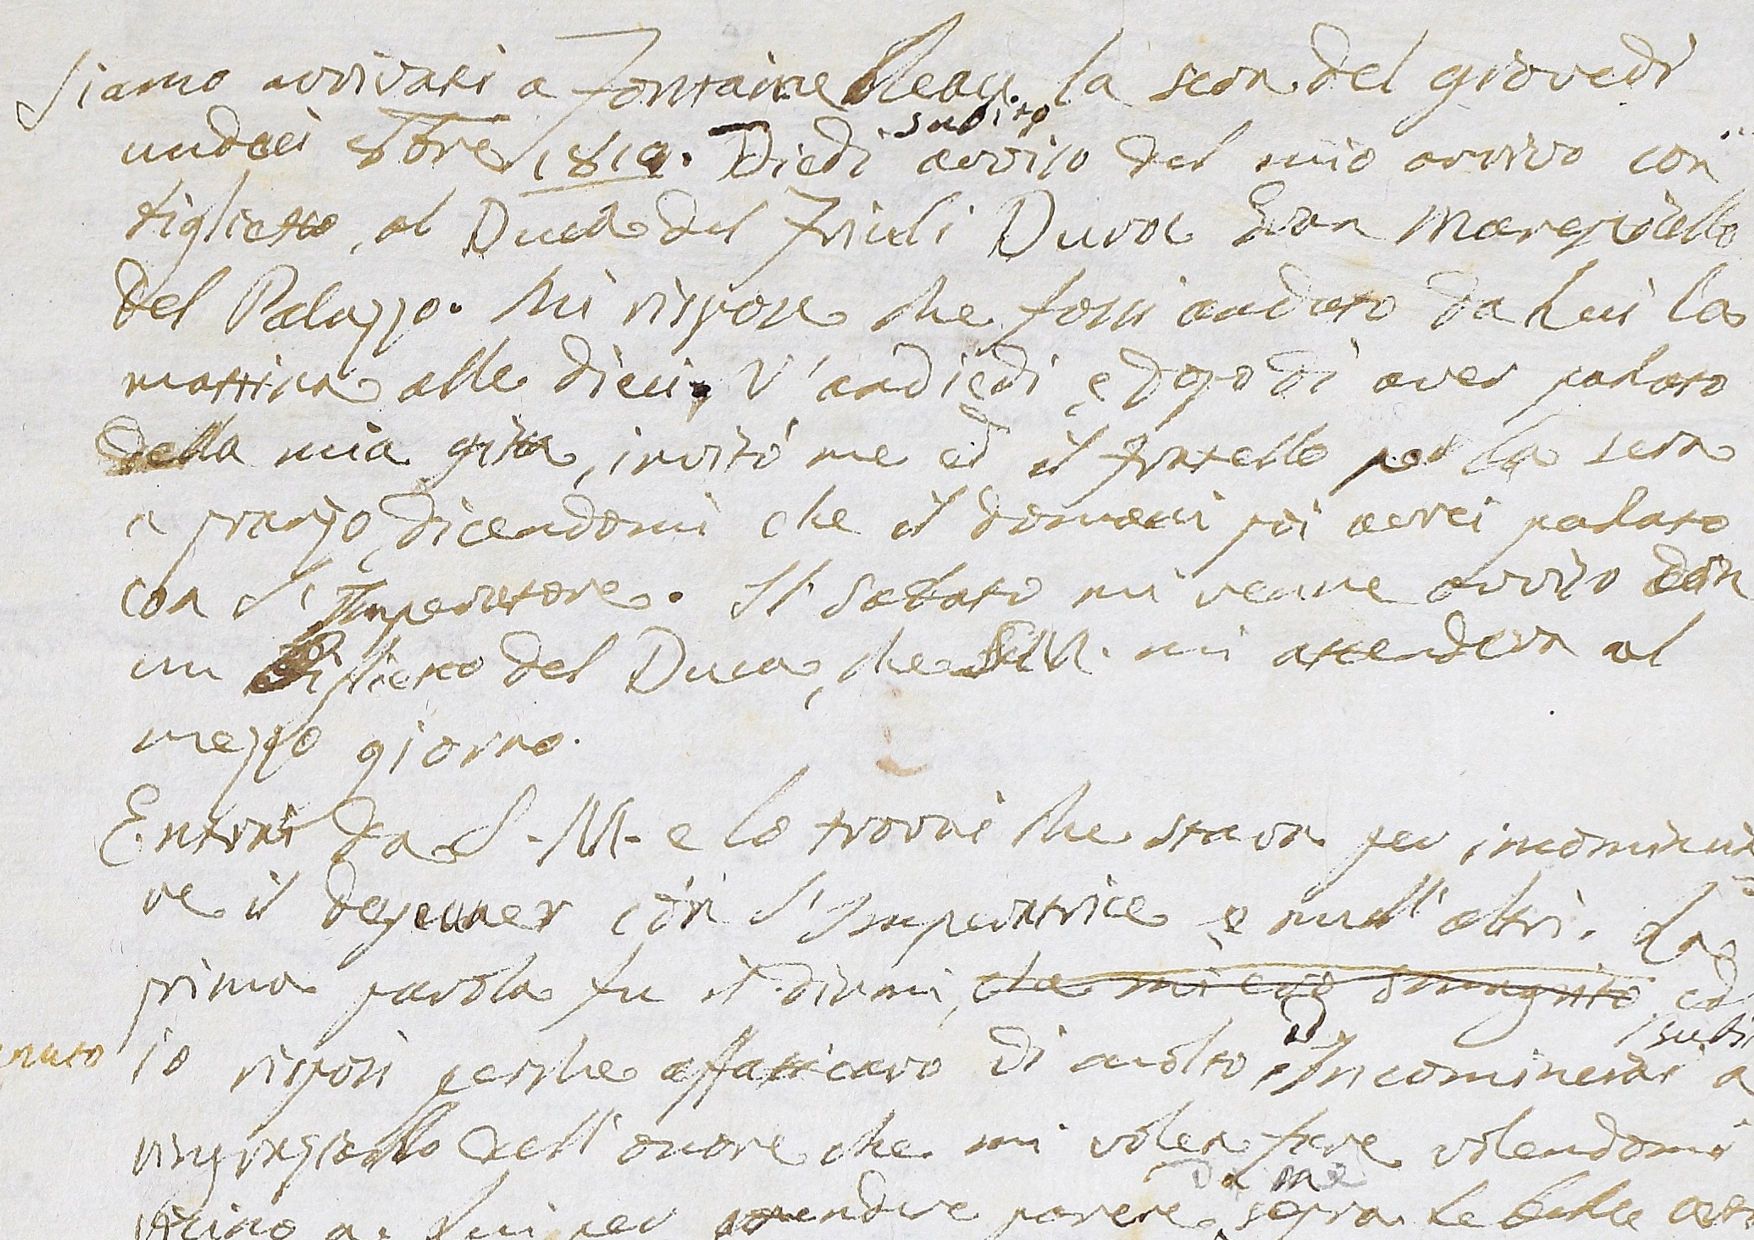 Siamo arrivati a Fontainebleau. la sera del giovedì
undeci 8bre 1810. Diedi subito avviso del mio arrivo con
biglietto, al Duca del Friuli Duroc Gran Maresciallo
del Palazzo. Mi rispose che fossi andato da Lui la
mattina alle dieci, v'andiedi, e dopo di aver parlato
della mia gita, invitò me ed il fratello per la sera
a pranzo, dicendomi che il domani poi avrei parlato
con l'Imperatore. Il Sabato mi venne avviso con
un Biglietto del Duca, che S.M. mi attendeva al
mezzo giorno.
Entrai da S.M. e lo trovai che stava per incomincia
re il dejeuner con l'Imperatrice e null'altri. La
prima parola fu il dirmi, che mi ero smagrito ed
io risposi perche affatticavo di molto, ed Incominciai subi
a
ringraziarlo dell'onore che mi volea fare volendomi
vicino a Lui per prendere parere da me sopra le belle arti